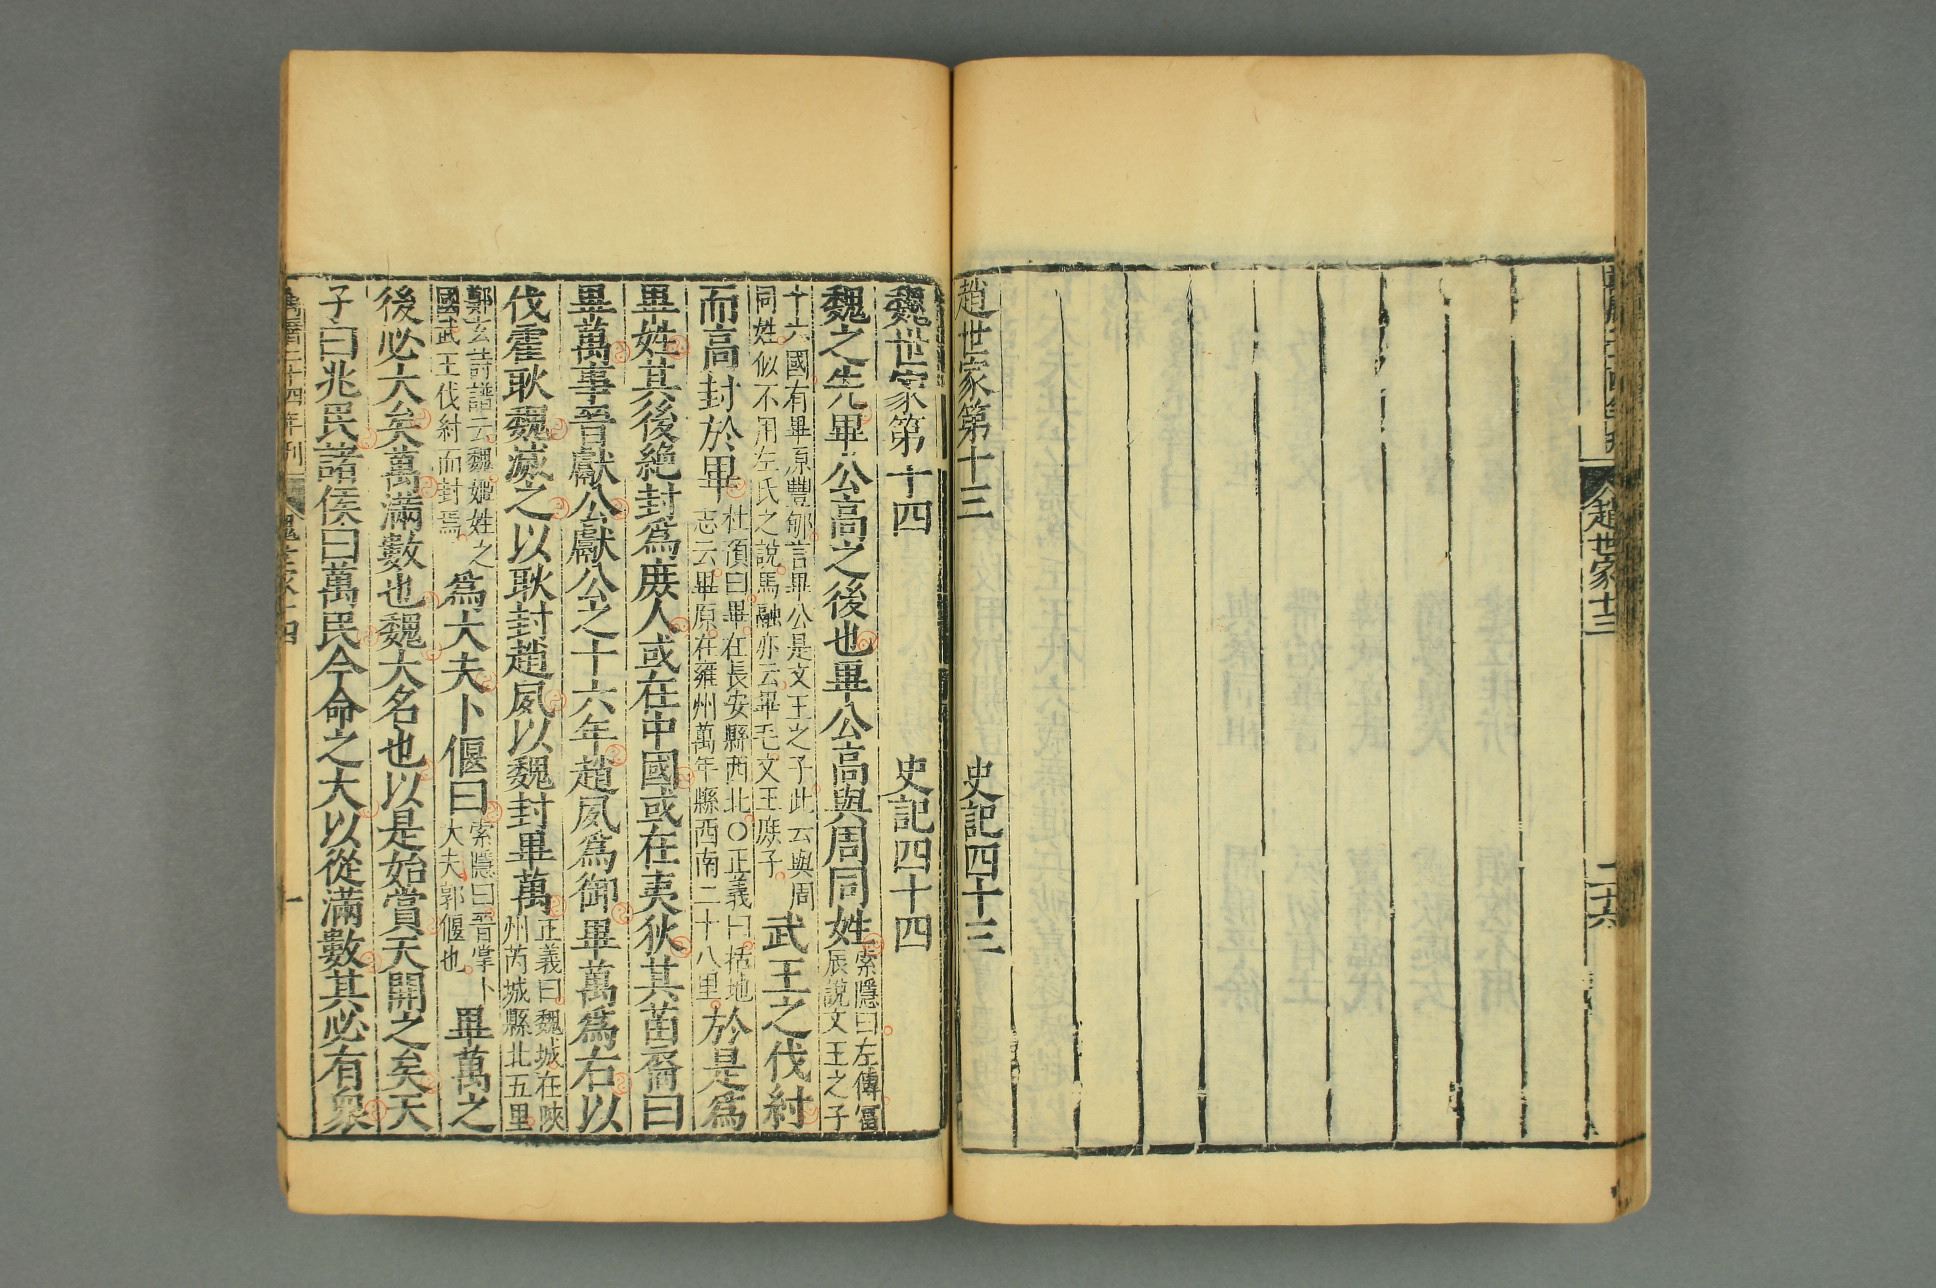 趙世家十三
二十六
趙世家第十三 史記四十三
魏世家第十四 史記四十四
魏之先畢公高之後也畢公高與周同姓索隱曰左傳富
辰說文王之子
十六國有畢原豐郇言畢公是文王之子此云與周
同姓似不用左氏之說馬融亦云畢毛文王庶子武王之伐紂
而高封於畢杜預曰畢在長安縣西北〇正義曰括地
志云畢原在雍州萬年縣西南二十八里於是爲
畢姓其後絶封爲庶人或在中國或在夷狄其苗裔曰
畢萬事晉獻公獻公之十六年趙夙爲御畢萬爲右以
伐霍耿魏滅之以耿封趙夙以魏封畢萬正義曰魏城在陜
州芮城縣北五里
鄭玄詩譜云魏姬姓之
國武王伐紂而封焉爲大夫卜偃曰索隱曰晉掌卜
大夫郭偃也畢萬之
後必大矣萬滿數也魏大名也以是始賞天開之矣天
子曰兆民諸侯曰萬民今命之大以從滿數其必有衆
萬曆二十四年刊
魏世家十四
一